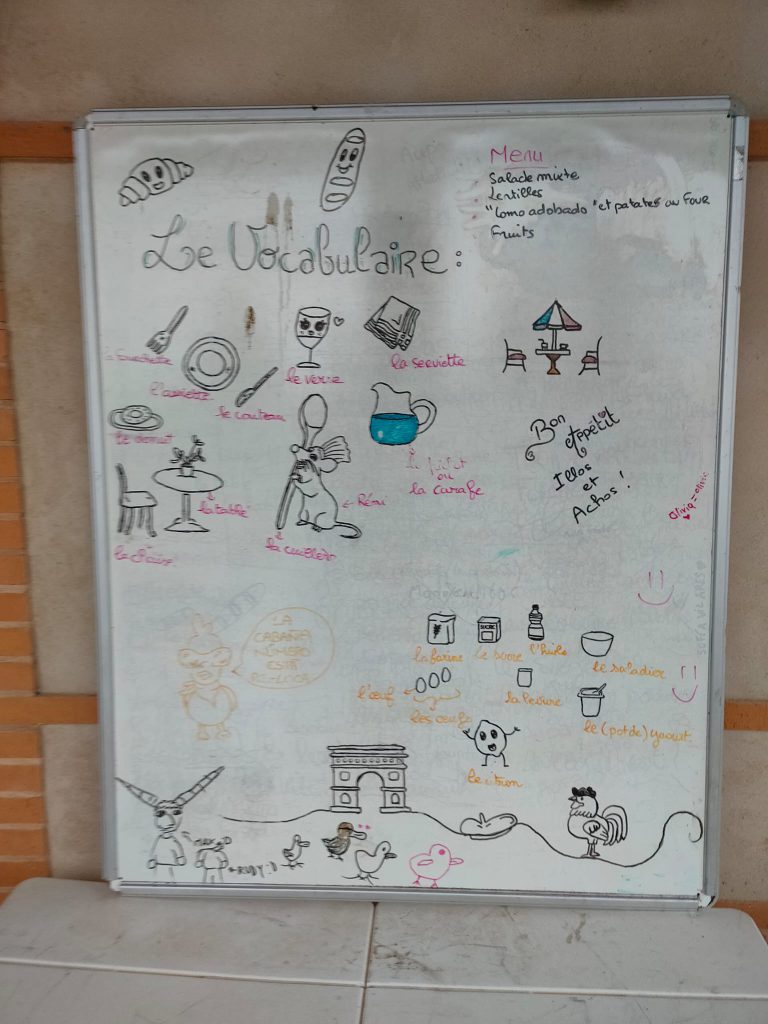 Menu
Salade mixte
Lentilles
"Lomo adobado" et patates au Four
Fruits
Le Vocabulaire:
la fourchette
l'assiette
le couteau
le verre
la serviette
le donut
la table
la chaise
la cuillère
← Rémi
le pichet
ou
la carafe
Bon
Appétit
Illos
et
Achos!
Olivia = olivie
SOFÍA
LA
CABAÑA
NÚMERO
ESTÁ
la farine
le sucre
SUCRE
l'huile
le saladier
l'œuf
les œufs
la levure
le (pot de) yaourt
le citron
MAX :D
RUDY :D